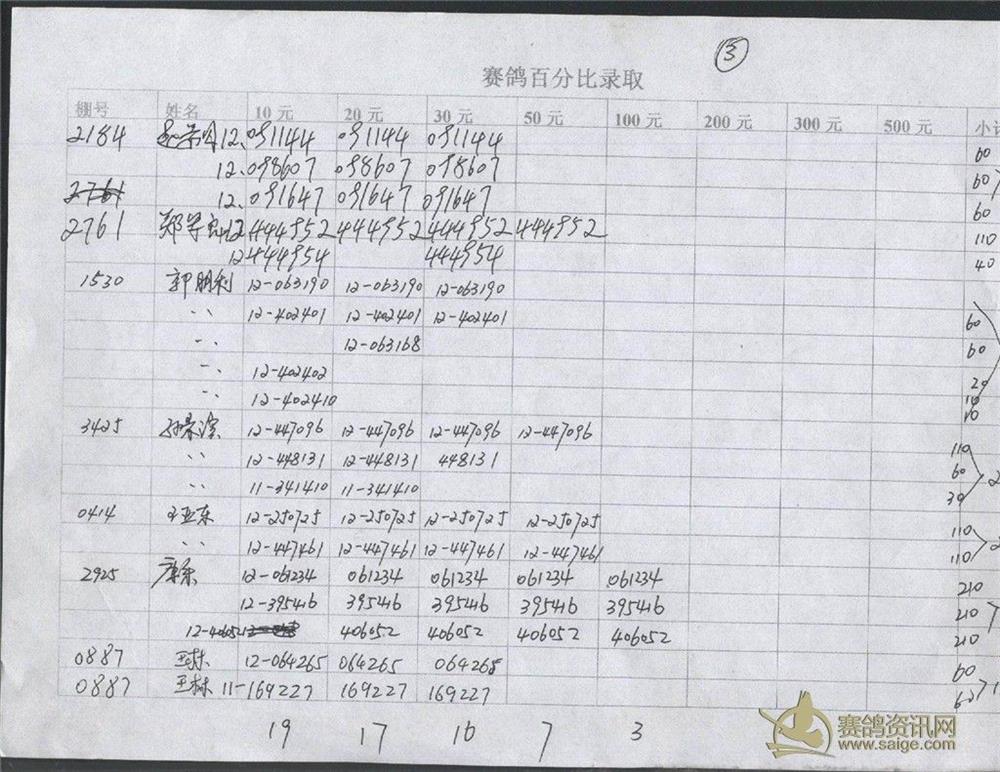 ③
赛鸽百分比录取
棚号 姓名 10元 20元 30元 50元 100元 200元 300元 500元 小计
2184 12.091144 091144 091144 60
12.098607 098607 098607 60
2761 12.091647 091647 091647 60
2761 郑 12.444952 444952 444952 444952 110
12444954 444954 40
1530 郭朋利 12-063190 12-063190 12-063190 60
〃 12-402401 12-402401 12-402401 60
〃 12-063168 20
〃 12-402402 10
〃 12-402410 10
3425 孙 12-447096 12-447096 12-447096 12-447096 110
〃 12-448131 12-448131 448131 60
〃 11-341410 11-341410 30
0414 王亚东 12-250725 12-250725 12-250725 12-250725 110
〃 12-447461 12-447461 12-447461 12-447461 110
2925 12-061234 061234 061234 061234 061234 210
12-395416 395416 395416 395416 395416 210
12-406052 406052 406052 406052 406052 210
0887 王栋 12-064265 064265 064265 60
0887 王栋 11-169227 169227 169227 60
19 17 16 7 3
赛鸽资讯网
www.saige.com